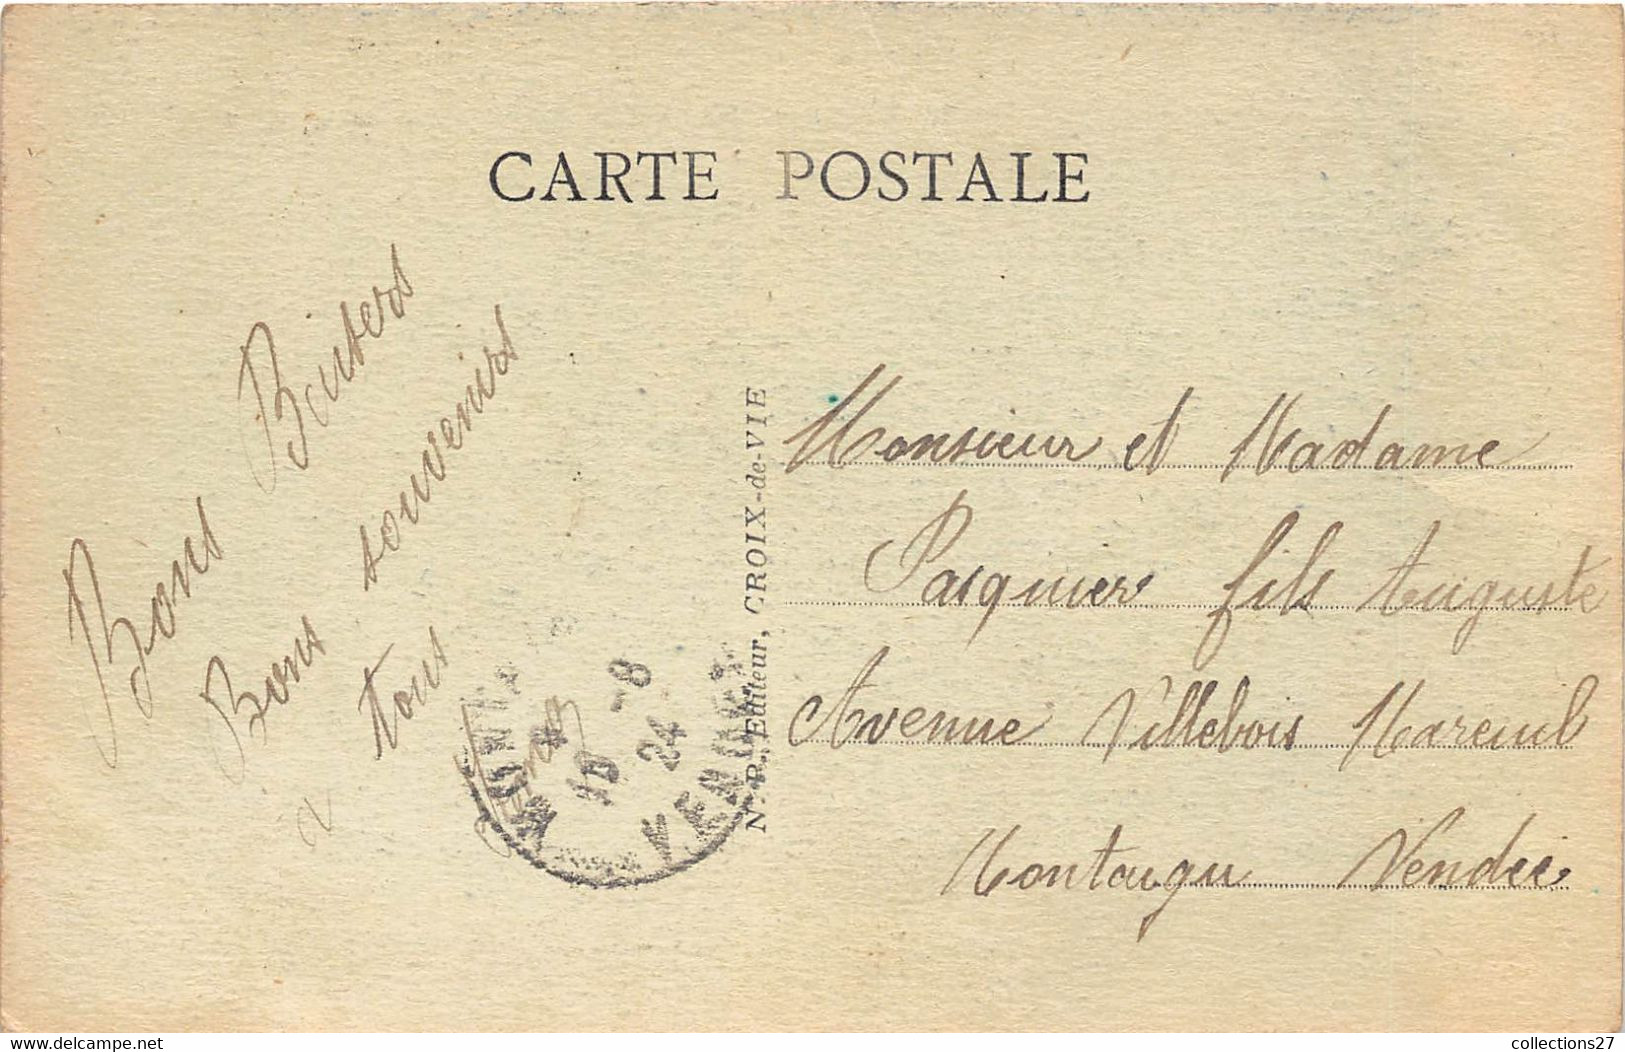 CARTE POSTALE
Bons Baisers
Bons souvenirs
a tous
10 -8
24
VENDEE
Editeur, CROIX-de-VIE
Monsieur et Madame
Pasquier fils Auguste
Avenue Villebois Mareuil
Montaigu Vendée
www.delcampe.net
collections27